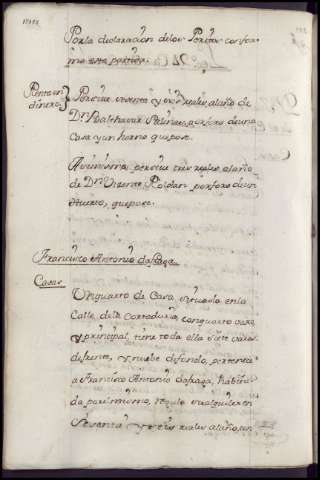 Por la declaracion de los Peritos confor
ma esta partida.
Renta en
dinero
Percive sesenta y seis reales al año de
Dn. Balthasar Salinas, por foro de una
Casa y un horno que posee.
Asimismo percive tres reales al año
de Dn. Vizente Roldan por foro de un
Huerto, que posee.
Francisco Antonio da fraga
Casas
Un quarto de Casa, situado en la
Calle de la Corredurìa, con quarto vaxo
y principal, tiene toda ella siete varas
de frente, y nuebe de fondo, pertenece
a Francisco Antonio da fraga, habita
da por si mismo, regula su alquiler en
Sesenta y seis reales al año, con